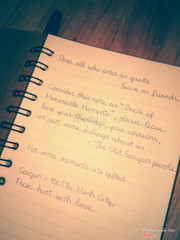 Dear all who enter as guests
leave as friends
Consider this note as "Book of
Memorable Moments", please leave
here your feelings, your opinions,
or just some feelings about us.
- The Old Saigon people
For some moments are gifted...
Saigon - Ho Chi Minh City,
From host with love